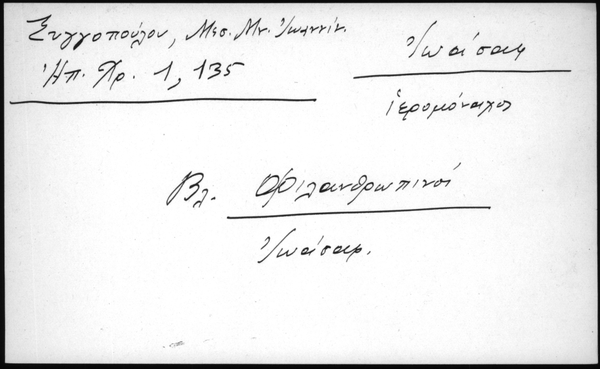 Ξυγγοπούλου, Μεσ. Μν. Ἰωαννίν.
Ἠπ. Χρ. 1, 135
Ἰωάσαφ
ἱερομόναχος
Βλ. Φιλανθρωπινοί
Ἰωάσαφ.